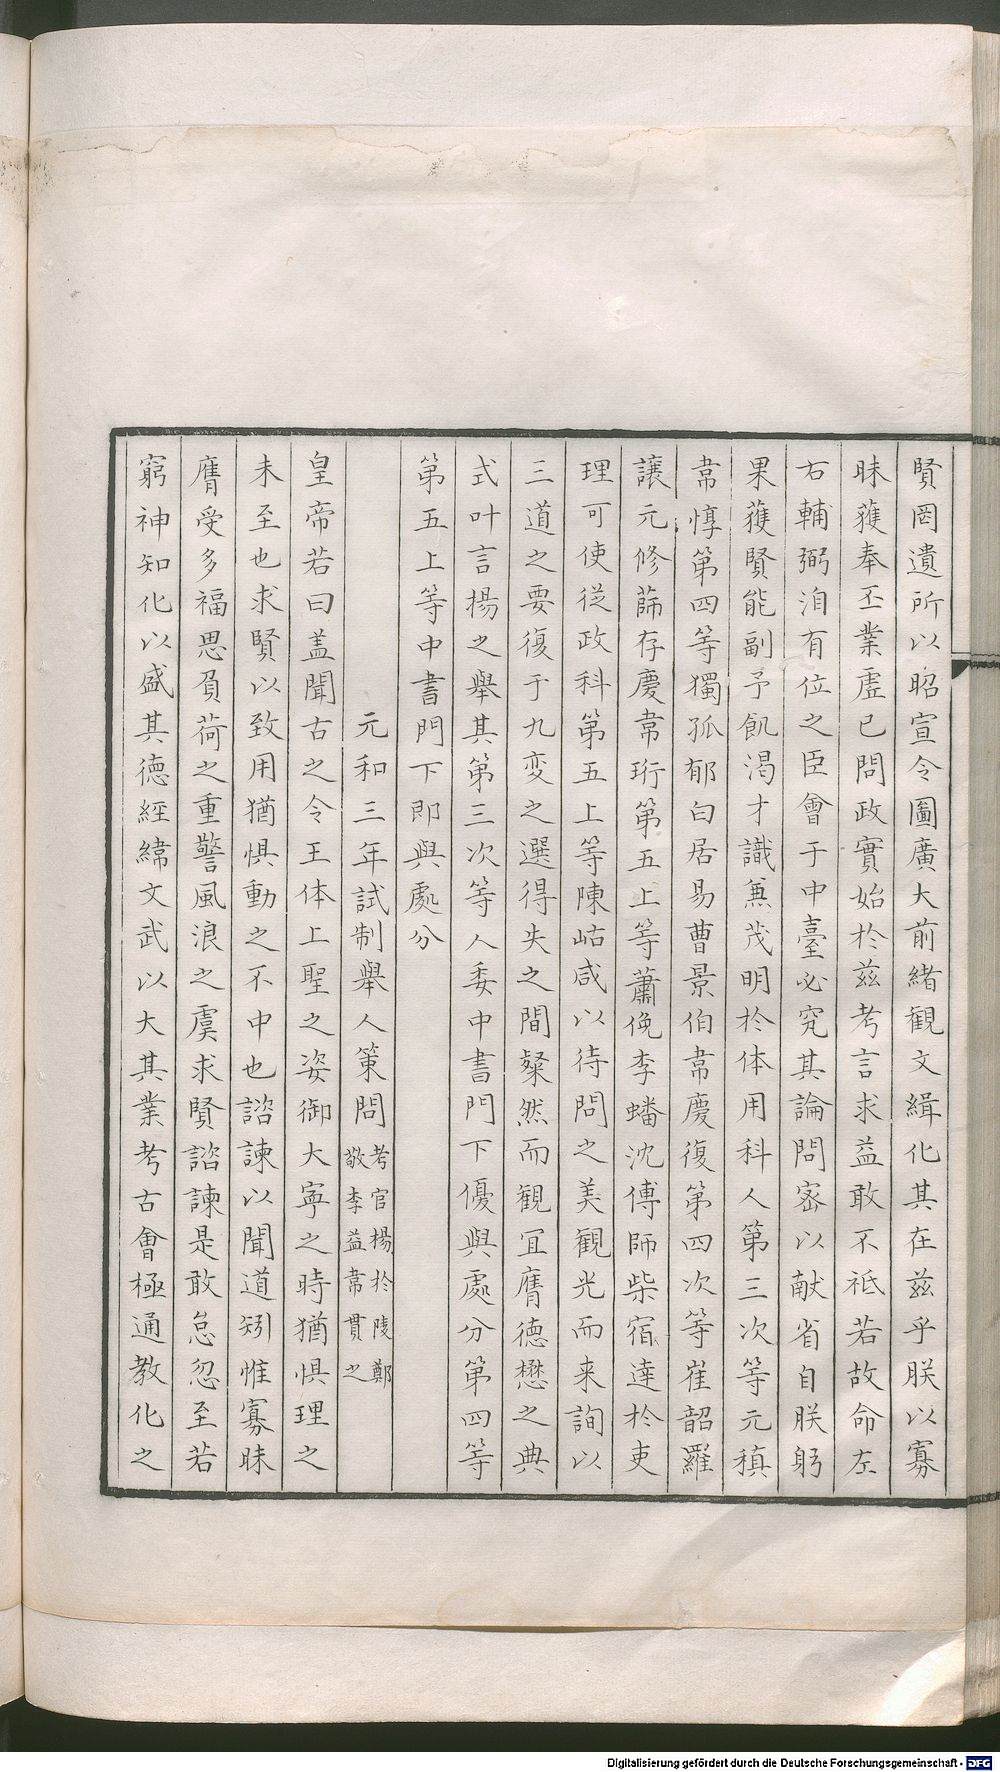 賢罔遺所以昭宣令圖廣大前緒觀文緝化其在兹乎朕以寡
昧獲奉丕業虛已問政實始於兹考言求益敢不祗若故命左
右輔弼洎有位之臣會于中臺必究其論問宻以献省自朕躬
果獲賢能副予飢渴才識兼茂明於体用科人第三次等元稹
韋惇第四等獨孤郁白居易曹景伯韋慶復第四次等崔韶羅
讓元修薛存慶韋珩第五上等蕭俛李蟠沈傅師柴宿達於吏
理可使從政科第五上等陳岵咸以待問之美觀光而来詢以
三道之要復于九変之選得失之間粲然而觀宜膺德懋之典
式叶言揚之舉其第三次等人委中書門下優與處分第四等
第五上等中書門下即與處分
元和三年試制舉人策問考官楊於陵鄭敬李益韋貫之
皇帝若曰盖聞古之令王体上聖之姿御大寧之時猶惧理之
未至也求賢以致用猶惧動之不中也諮諫以聞道矧惟寡昧
膺受多福思負荷之重警風浪之虞求賢諮諫是敢怠忽至若
窮神知化以盛其德經緯文武以大其業考古會極通教化之
Digitalisierung gefördert durch die Deutsche Forschungsgemeinschaft - DFG